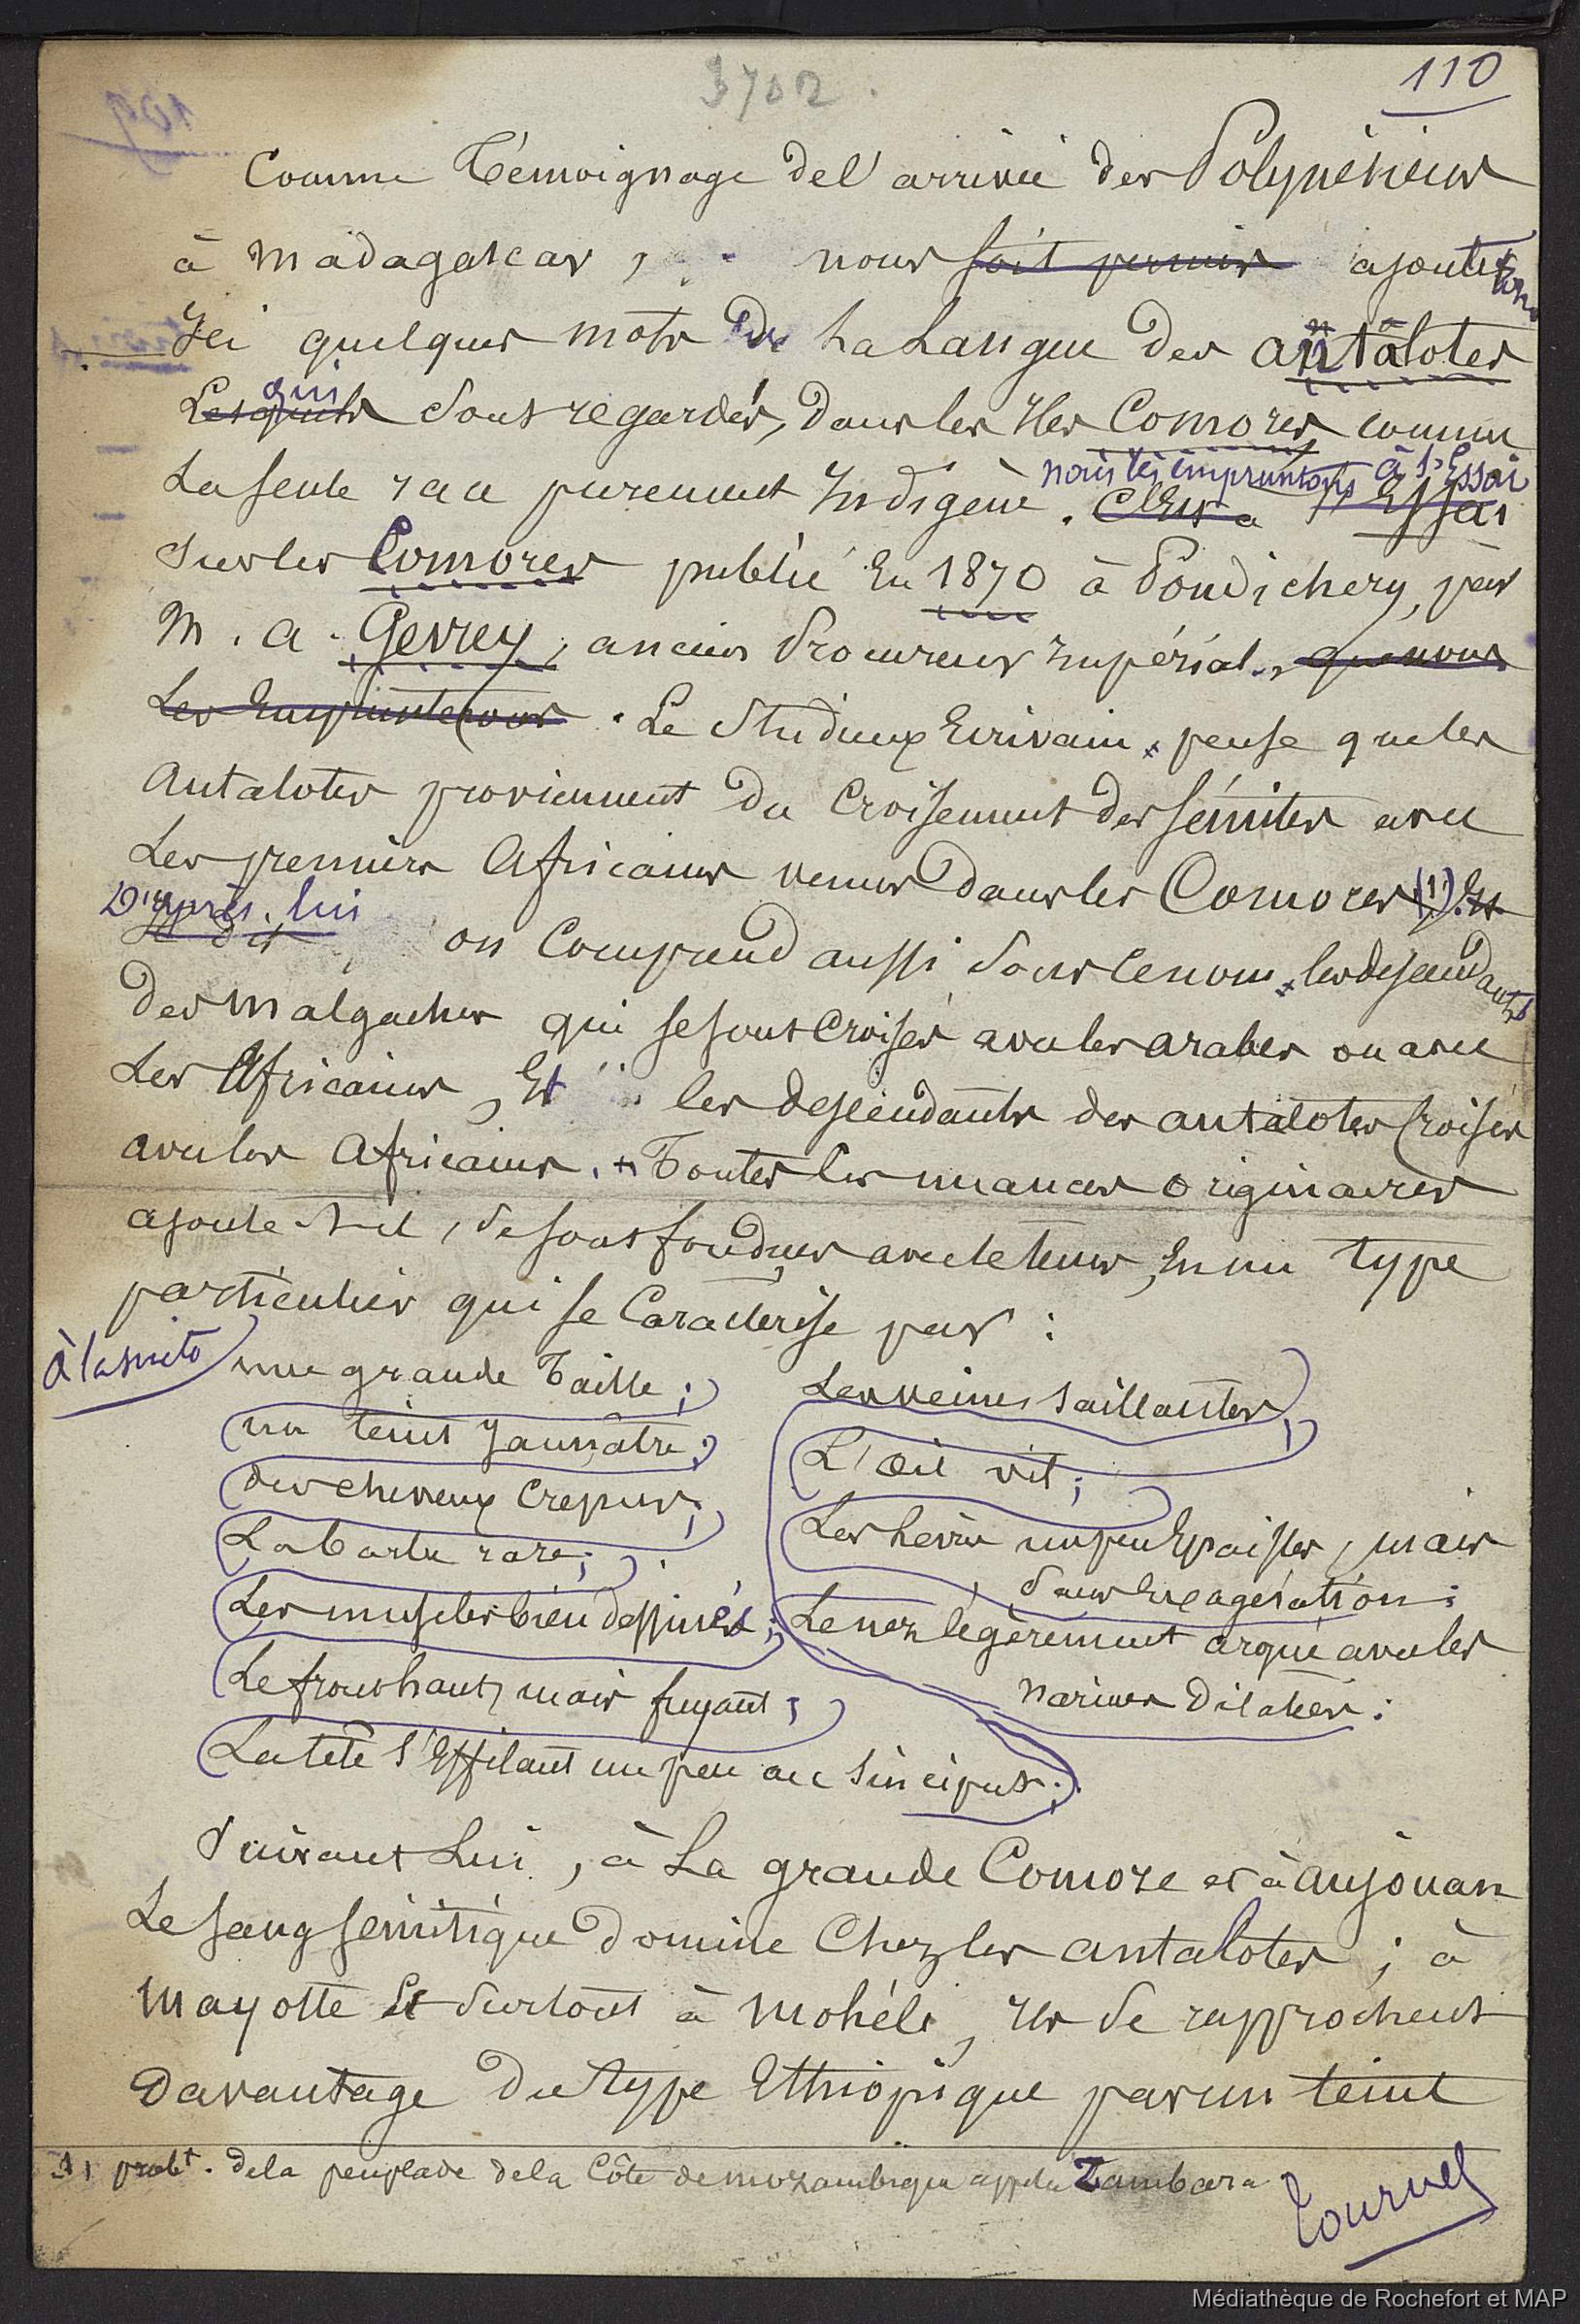 3702.
110
Comme Témoignage de l'arrivée des Polynésiens
à Madagascar, nous soit permis ajouterons
Ici quelques mots de La Langue des antalotes
Lesquels qui Sont regardés, Dans les Iles Comores comme
La seule race purement Indigène. C'Est à l'Essai nous les empruntons à l'Essai
Sur les Comores publié En 1870 à Pondichery, par
M. A. Gevrey, ancien Procureur Impérial, que nous
Les Emprunterons. Le Studieux Ecrivain pense que les
Antalotes proviennent Du Croisement des sémites avec
Les premiers Africains venus Dans les Comores (1). Et
Il dit, D'après lui on Comprend aussi Sous ce nom les descendants
Des Malgaches qui se sont Croisés avec les arabes ou avec
Les Africains, Et les descendants des antalotes Croisés
avec les Africains. Toutes les nuances originaires
ajoute-t-il, se sont fondues avec le temps, En un type
particulier qui se Caractérise par :
à la suite
une grande Taille ;
un teint Jaunâtre ;
des cheveux Crepus ;
La barbe rare ;
Les muscles bien dessinés ;
Le front haut, mais fuyant ;
La tête s'Effilant un peu au sinciput ;
Les veines saillantes ;
L'œil vif ;
Les lèvres un peu Epaisses, mais
Sans Exagération ;
Le nez légèrement arqué avec les
narines Dilatées ;
Suivant Lui, à La grande Comore et à anjouan
Le sang sémitique Domine Chez les antalotes ; à
Mayotte Et Surtout à Mohéli, Ils Se rapprochent
Davantage Du type Ethiopique par un teint
(1) probt. de la peuplade de la Côte de Mozambique appelée Zambara
Tournez
Médiathèque de Rochefort et MAP